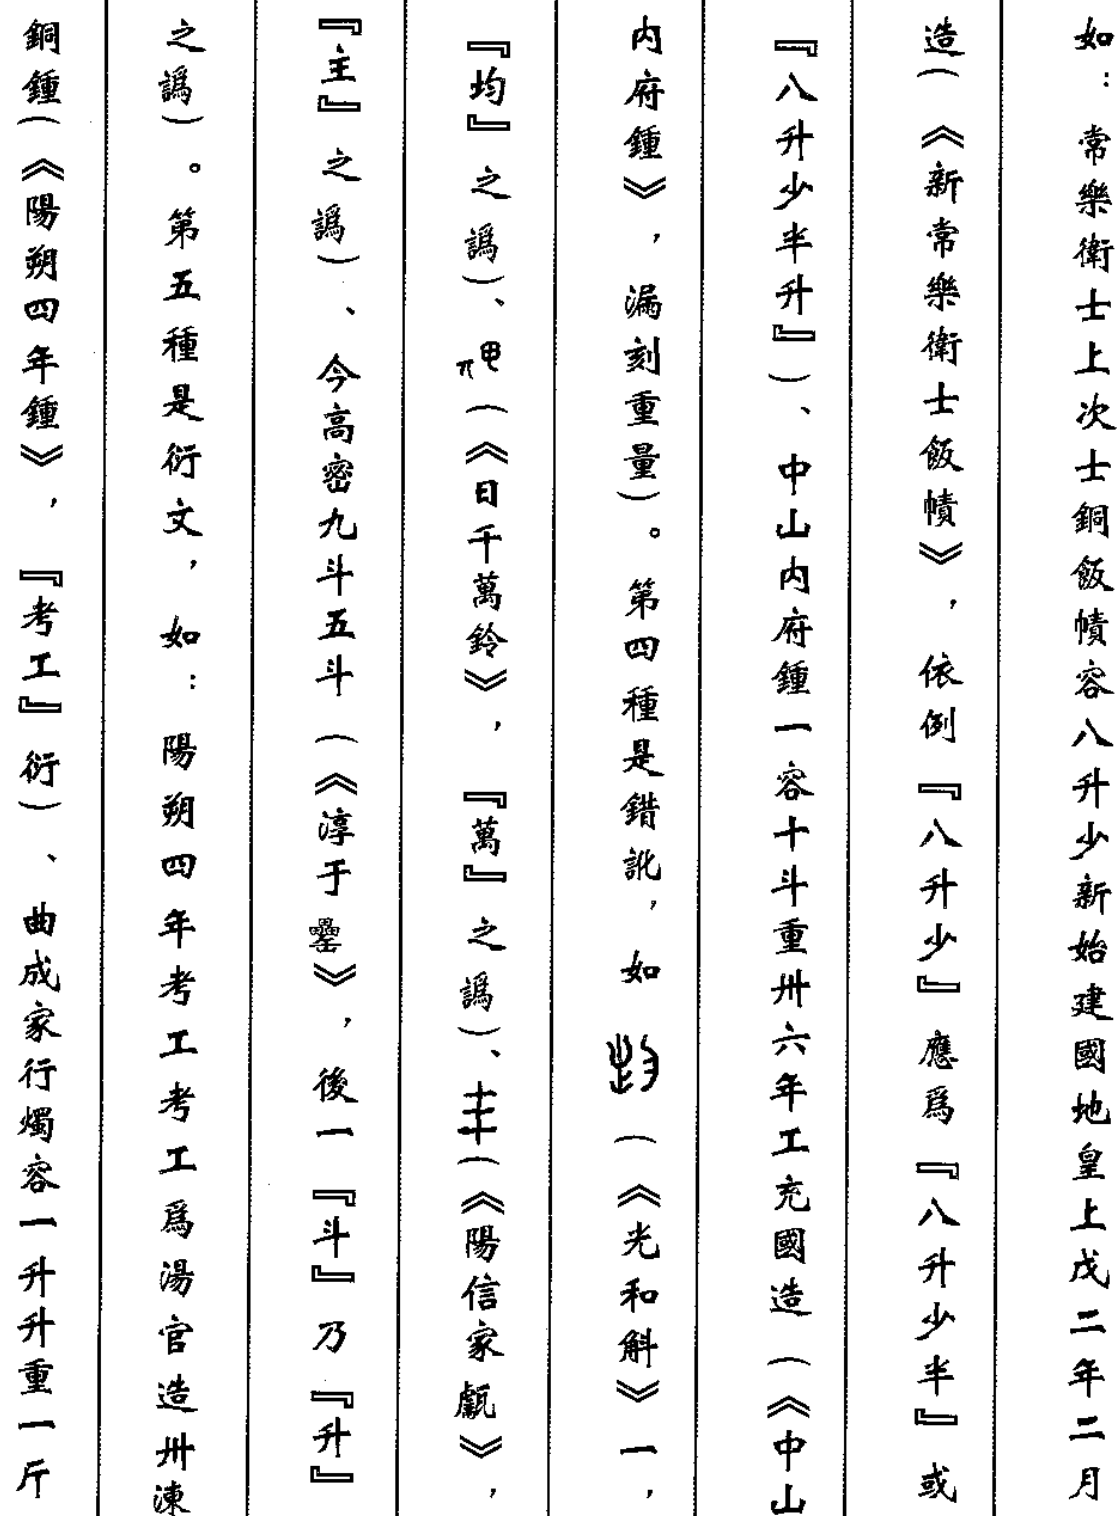 如：常樂衛士上次士銅飯幘容八升少新始建國地皇上戊二年二月
造(《新常樂衛士飯幘》，依例『八升少』應爲『八升少半』或
『八升少半升』)、中山内府鍾一容十斗重卅六年工充國造(《中山
内府鍾》，漏刻重量)。第四種是錯訛，如(《光和斛》一，
『均』之譌)、(《日千萬鈴》，『萬』之譌)、(《陽信家甗》，
『主』之譌)、今高密九斗五斗(《淳于罍》，後一『斗』乃『升』
之譌)。第五種是衍文，如：陽朔四年考工考工爲湯官造卅涷
銅鍾(《陽朔四年鍾》，『考工』衍)、曲成家行燭容一升升重一斤